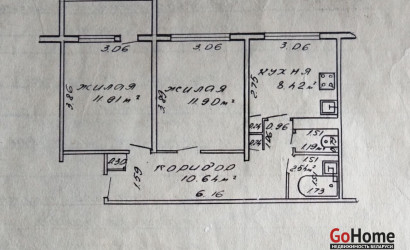 3.06
3.06
3.06
3.86
ЖИЛАЯ
11.81м²
3.89
ЖИЛАЯ
11.90м²
2.75
КУХНЯ
8.42м²
0.96
1.51
1.19м²
1.51
2.64м²
1.73
0.30
1.59
КОРИДОР
10.64м²
6.16
GoHome
НЕДВИЖИМОСТЬ БЕЛАРУСИ